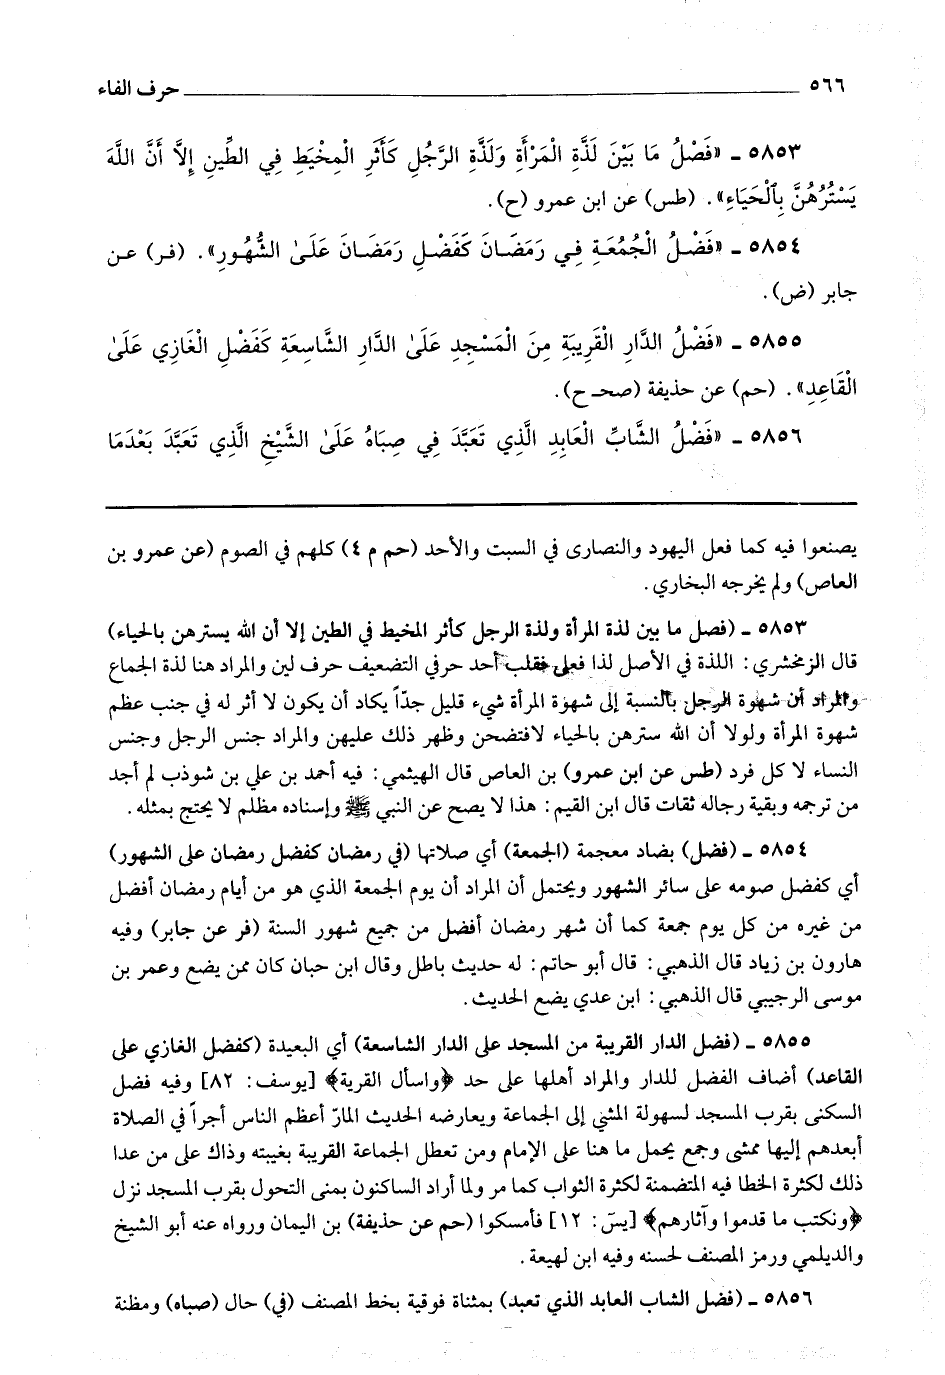 ٥٦٦ ــــــ حرف الفاء
٥٨٥٣ ـ «فَضْلُ مَا بَيْنَ لَذَّةِ الْمَرْأَةِ وَلَذَّةِ الرَّجُلِ كَأَثَرِ الْمِخْيَطِ فِي الطِّينِ إِلاَّ أَنَّ اللَّهَ
يَسْتُرُهُنَّ بِالْحَيَاءِ». (طس) عن ابن عمرو (ح).
٥٨٥٤ ـ «فَضْلُ الْجُمُعَةِ فِي رَمَضَانَ كَفَضْلِ رَمَضَانَ عَلَىٰ الشُّهُورِ». (فر) عن
جابر (ض).
٥٨٥٥ ـ «فَضْلُ الدَّارِ الْقَرِيبَةِ مِنَ الْمَسْجِدِ عَلَىٰ الدَّارِ الشَّاسِعَةِ كَفَضْلِ الْغَازِي عَلَىٰ
الْقَاعِدِ». (حم) عن حذيفة (صحـ ح).
٥٨٥٦ ـ «فَضْلُ الشَّابِّ الْعَابِدِ الَّذِي تَعَبَّدَ فِي صِبَاهُ عَلَىٰ الشَّيْخِ الَّذِي تَعَبَّدَ بَعْدَمَا
يصنعوا فيه كما فعل اليهود والنصارى في السبت والأحد (حم م ٤) كلهم في الصوم (عن عمرو بن
العاص) ولم يخرجه البخاري.
٥٨٥٣ ـ (فصل ما بين لذة المرأة ولذة الرجل كأثر المخيط في الطين إلا أن الله يسترهن بالحياء)
قال الزمخشري: اللذة في الأصل لذا فعلى فقلب أحد حرفي التضعيف حرف لين والمراد هنا لذة الجماع
والمراد أن شهوة الرجل بالنسبة إلى شهوة المرأة شيء قليل جدّاً يكاد أن يكون لا أثر له في جنب عظم
شهوة المرأة ولولا أن الله سترهن بالحياء لافتضحن وظهر ذلك عليهن والمراد جنس الرجل وجنس
النساء لا كل فرد (طس عن ابن عمرو) بن العاص قال الهيثمي: فيه أحمد بن علي بن شوذب لم أجد
من ترجمه وبقية رجاله ثقات قال ابن القيم: هذا لا يصح عن النبي ﷺ وإسناده مظلم لا يحتج بمثله.
٥٨٥٤ ـ (فضل) بضاد معجمة (الجمعة) أي صلاتها (في رمضان كفضل رمضان على الشهور)
أي كفضل صومه على سائر الشهور ويحتمل أن المراد أن يوم الجمعة الذي هو من أيام رمضان أفضل
من غيره من كل يوم جمعة كما أن شهر رمضان أفضل من جميع شهور السنة (فر عن جابر) وفيه
هارون بن زياد قال الذهبي: قال أبو حاتم: له حديث باطل وقال ابن حبان كان ممن يضع وعمر بن
موسى الرجيبي قال الذهبي: ابن عدي يضع الحديث.
٥٨٥٥ ـ (فضل الدار القريبة من المسجد على الدار الشاسعة) أي البعيدة (كفضل الغازي على
القاعد) أضاف الفضل للدار والمراد أهلها على حد ﴿واسأل القرية﴾ [يوسف: ٨٢] وفيه فضل
السكنى بقرب المسجد لسهولة المشي إلى الجماعة ويعارضه الحديث المارّ أعظم الناس أجراً في الصلاة
أبعدهم إليها ممشى وجمع يحمل ما هنا على الإمام ومن تعطل الجماعة القريبة بغيبته وذاك على من عدا
ذلك لكثرة الخطا فيه المتضمنة لكثرة الثواب كما مر ولما أراد الساكنون بمنى التحول بقرب المسجد نزل
﴿ونكتب ما قدموا وآثارهم﴾ [يسّ: ١٢] فأمسكوا (حم عن حذيفة) بن اليمان ورواه عنه أبو الشيخ
والديلمي ورمز المصنف لحسنه وفيه ابن لهيعة.
٥٨٥٦ ـ (فضل الشاب العابد الذي تعبد) بمثناة فوقية بخط المصنف (في) حال (صباه) ومظنة